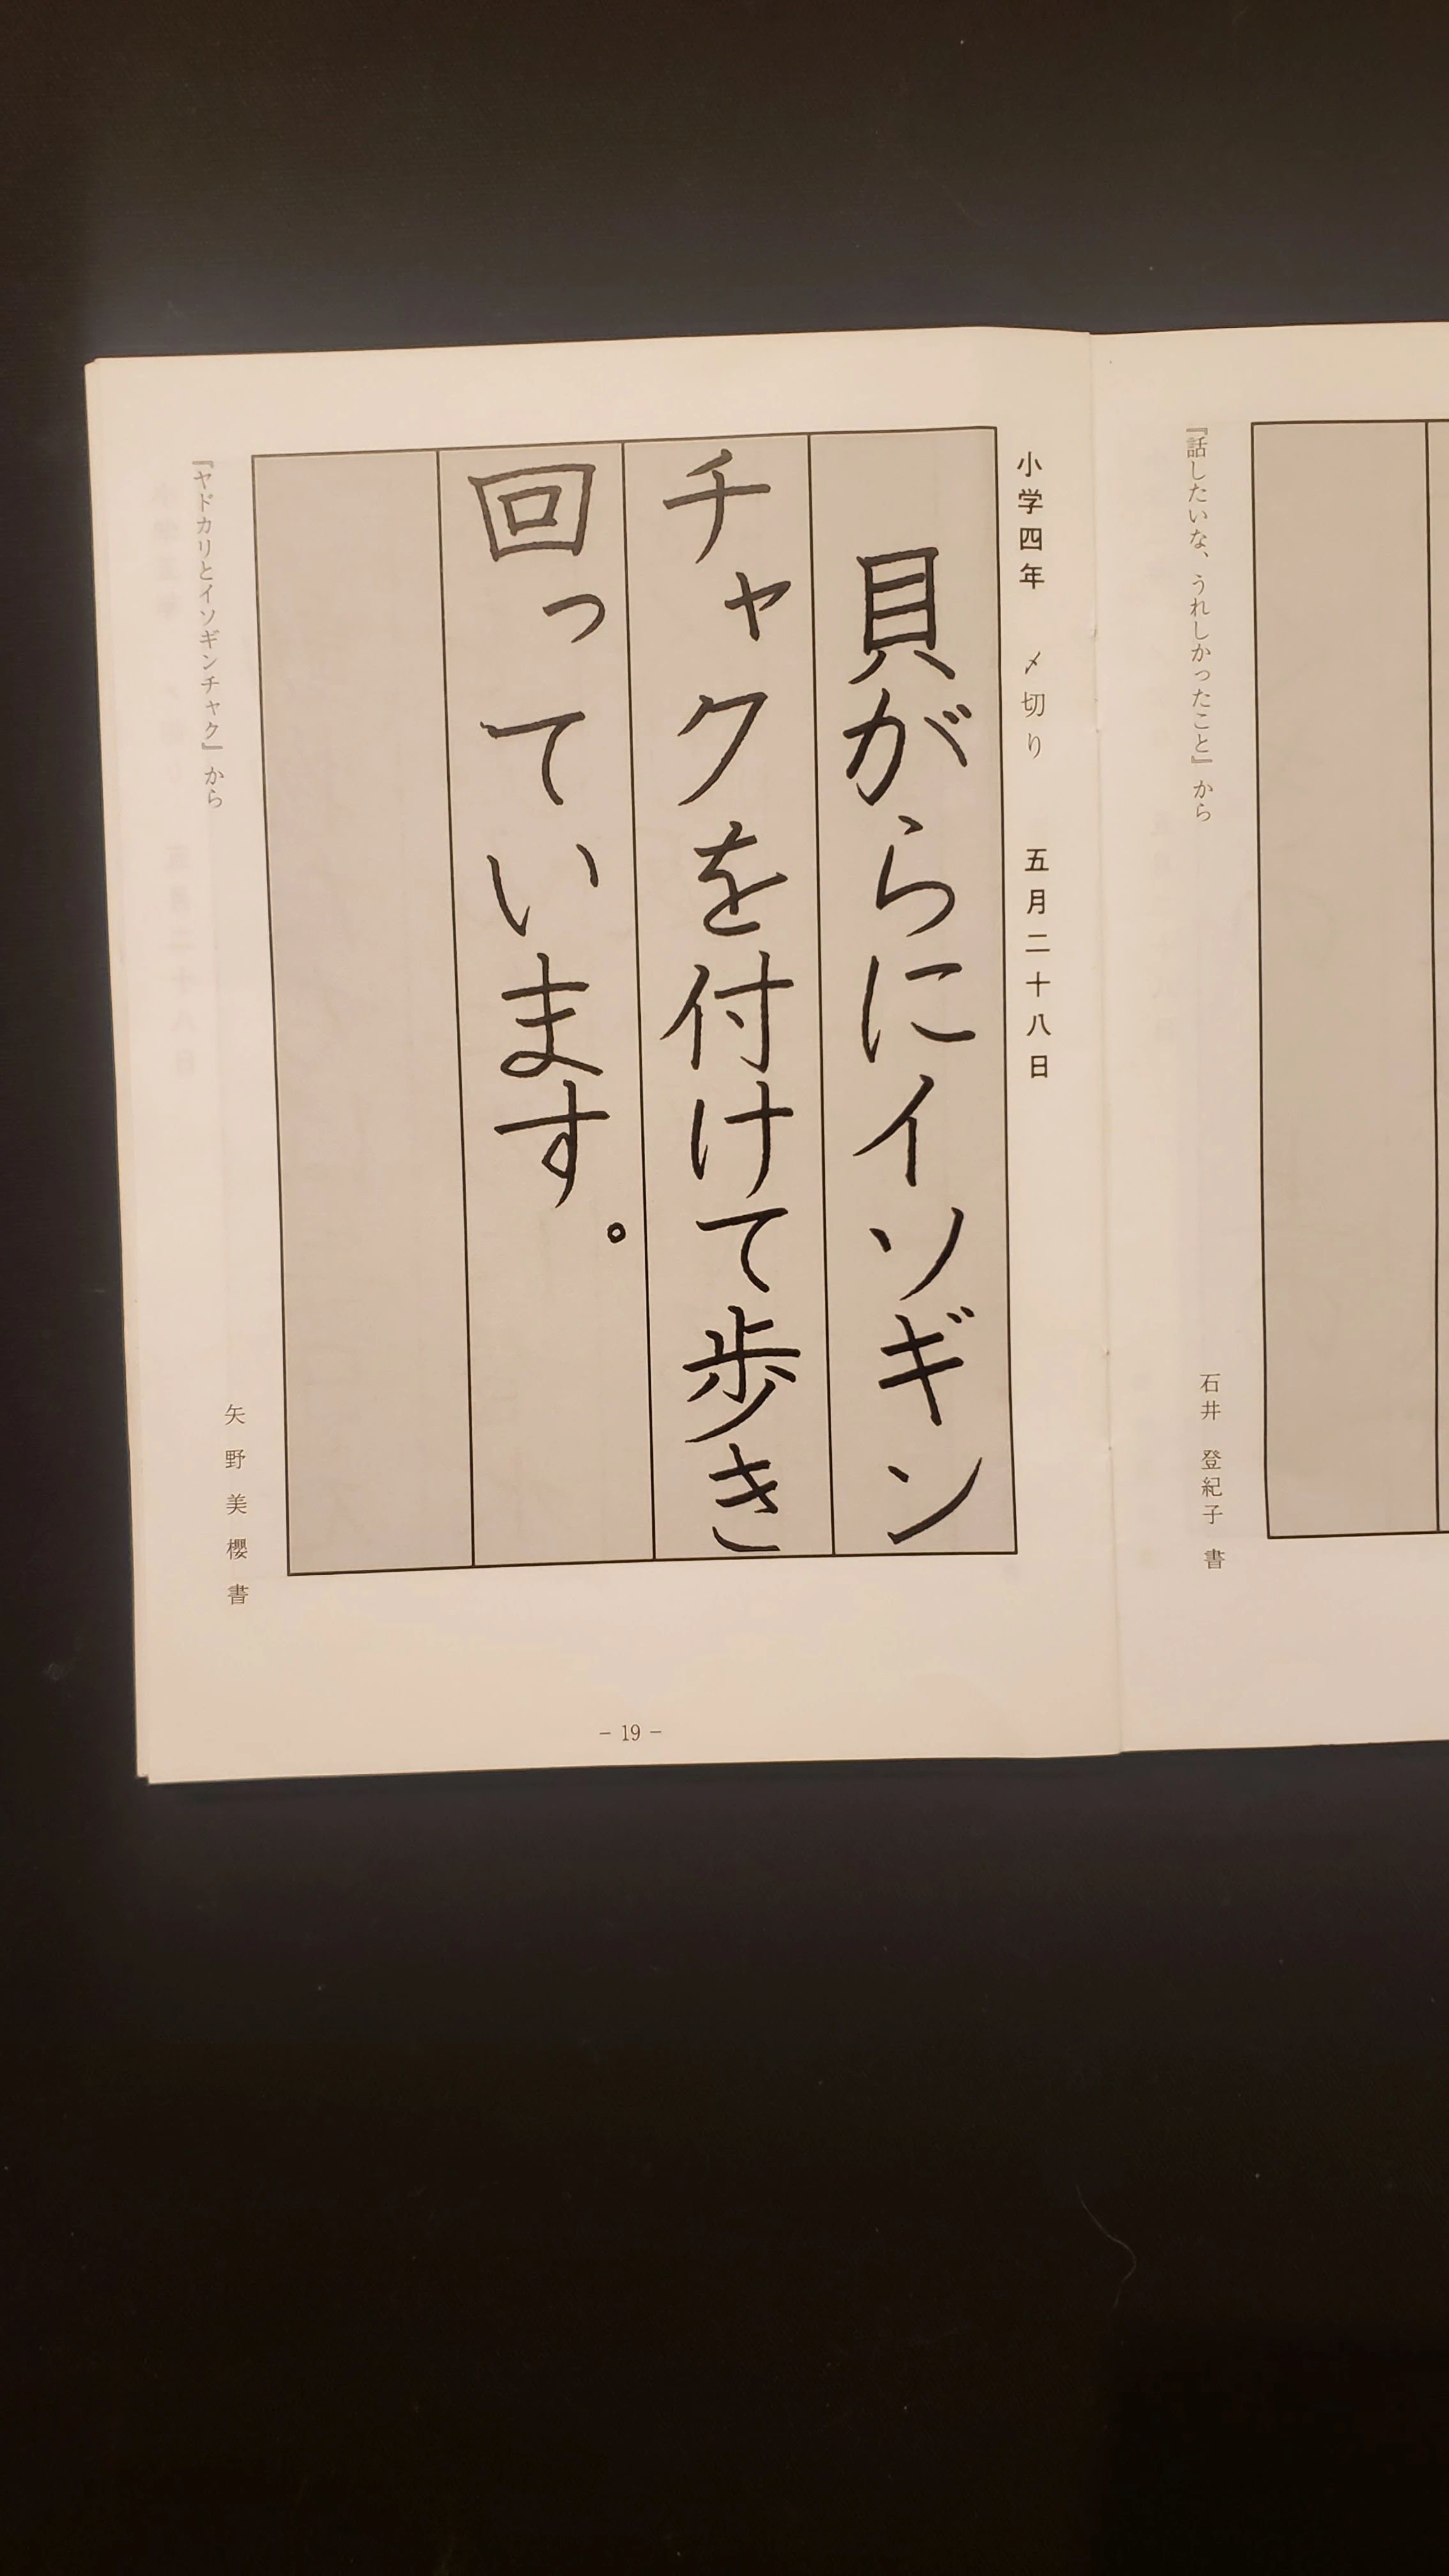 『話したいな、うれしかったこと』から
石井 登紀子 書
小学四年 〆切り 五月二十八日
貝がらにイソギン
チャクを付けて歩き
回っています。
『ヤドカリとイソギンチャク』から
矢野美櫻書
- 19 -